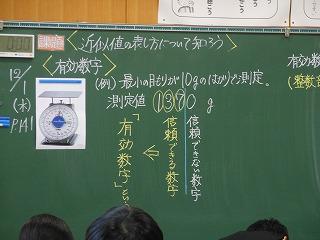 課題 〈近似値の表し方について知ろう〉
〈有効数字〉
(例) 最小の目もりが10gのはかりで測定。
測定値 1380 g
信頼できない数字
信頼できる数字
⇐
「有効数字」とい
12/1
(水)
P.141
有効
(整数部